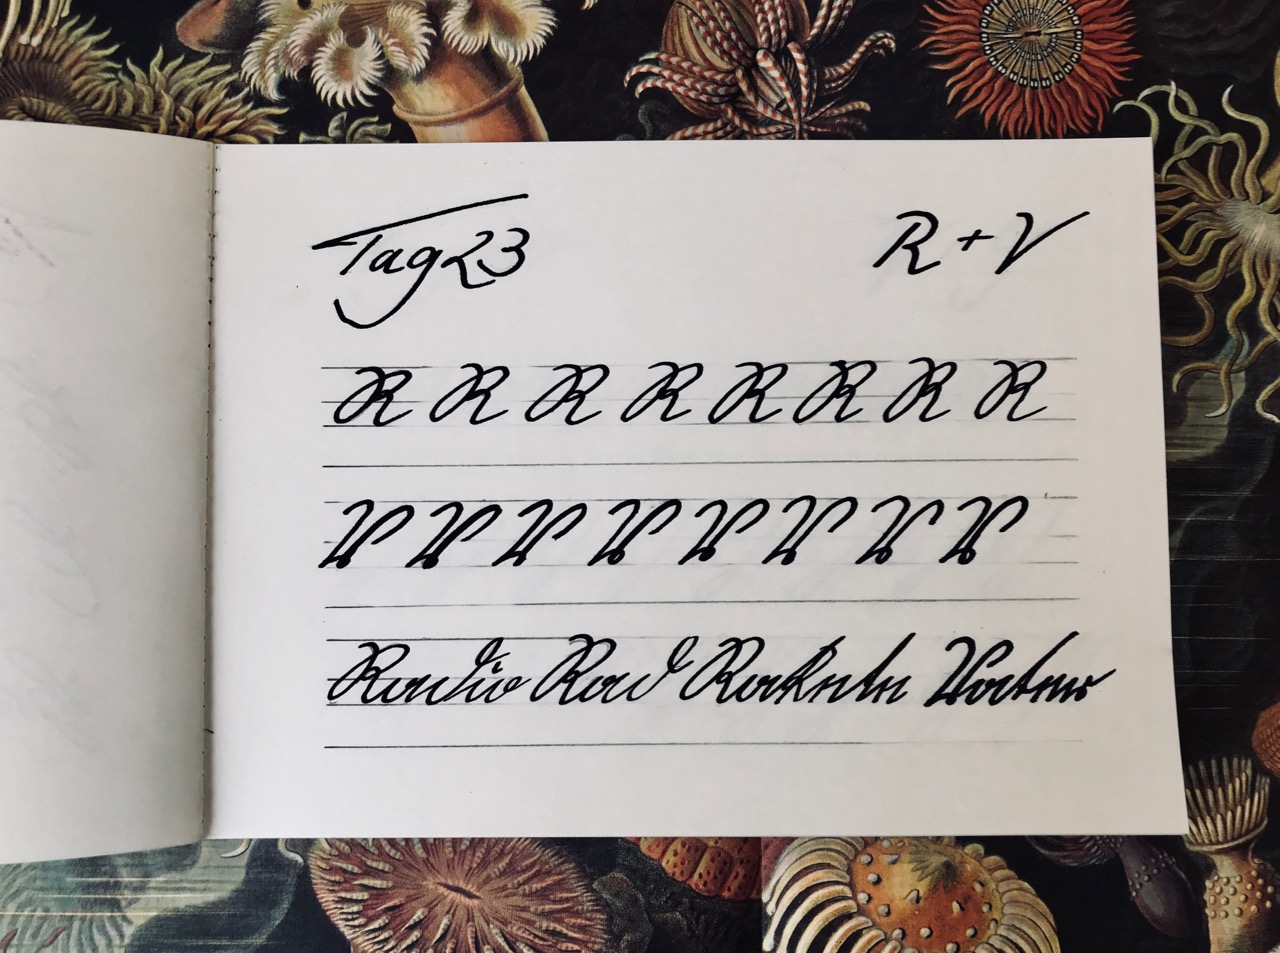 Tag 23 R + V
R R R R R R R R
V V V V V V V V
Radio Rad Rakete Vater